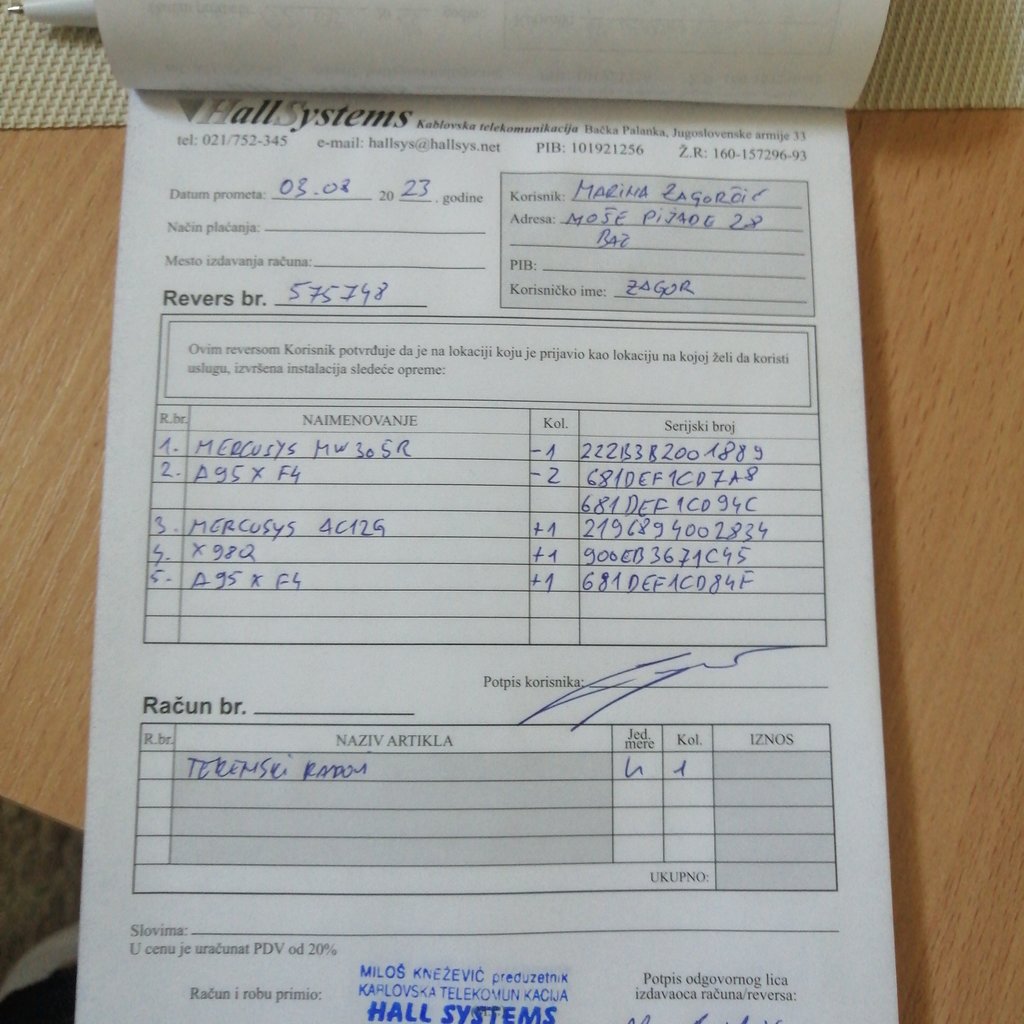 HallSystems Kablovska telekomunikacija Bačka Palanka, Jugoslovenske armije 33
tel: 021/752-345 e-mail: hallsys@hallsys.net PIB: 101921256 Ž.R: 160-157296-93
Datum prometa: 03.08 20 23. godine
Način plaćanja:
Mesto izdavanja računa:
Revers br. 575748
Korisnik: MARINA ZAGORČIĆ
Adresa: MOŠE PIJADE 28
BAČ
PIB:
Korisničko ime: ZAGOR
Ovim reversom Korisnik potvrđuje da je na lokaciji koju je prijavio kao lokaciju na kojoj želi da koristi
uslugu, izvršena instalacija sledeće opreme:
R.br. NAIMENOVANJE Kol. Serijski broj
1. MERCUSYS MW305R -1 222B3B2001889
2. A95X F4 -2 681DEF1CD7A8
681DEF1CD94C
3. MERCUSYS AC12G +1 2196894002834
4. X98Q +1 900EB3671C45
5. A95X F4 +1 681DEF1CD84F
Potpis korisnika:
Račun br.
R.br. NAZIV ARTIKLA Jed. mere Kol. IZNOS
TERENSKI RADOVI h 1
UKUPNO:
Slovima:
U cenu je uračunat PDV od 20%
Račun i robu primio:
MILOŠ KNEŽEVIĆ preduzetnik
KABLOVSKA TELEKOMUNIKACIJA
HALL SYSTEMS
Potpis odgovornog lica
izdavaoca računa/reversa: